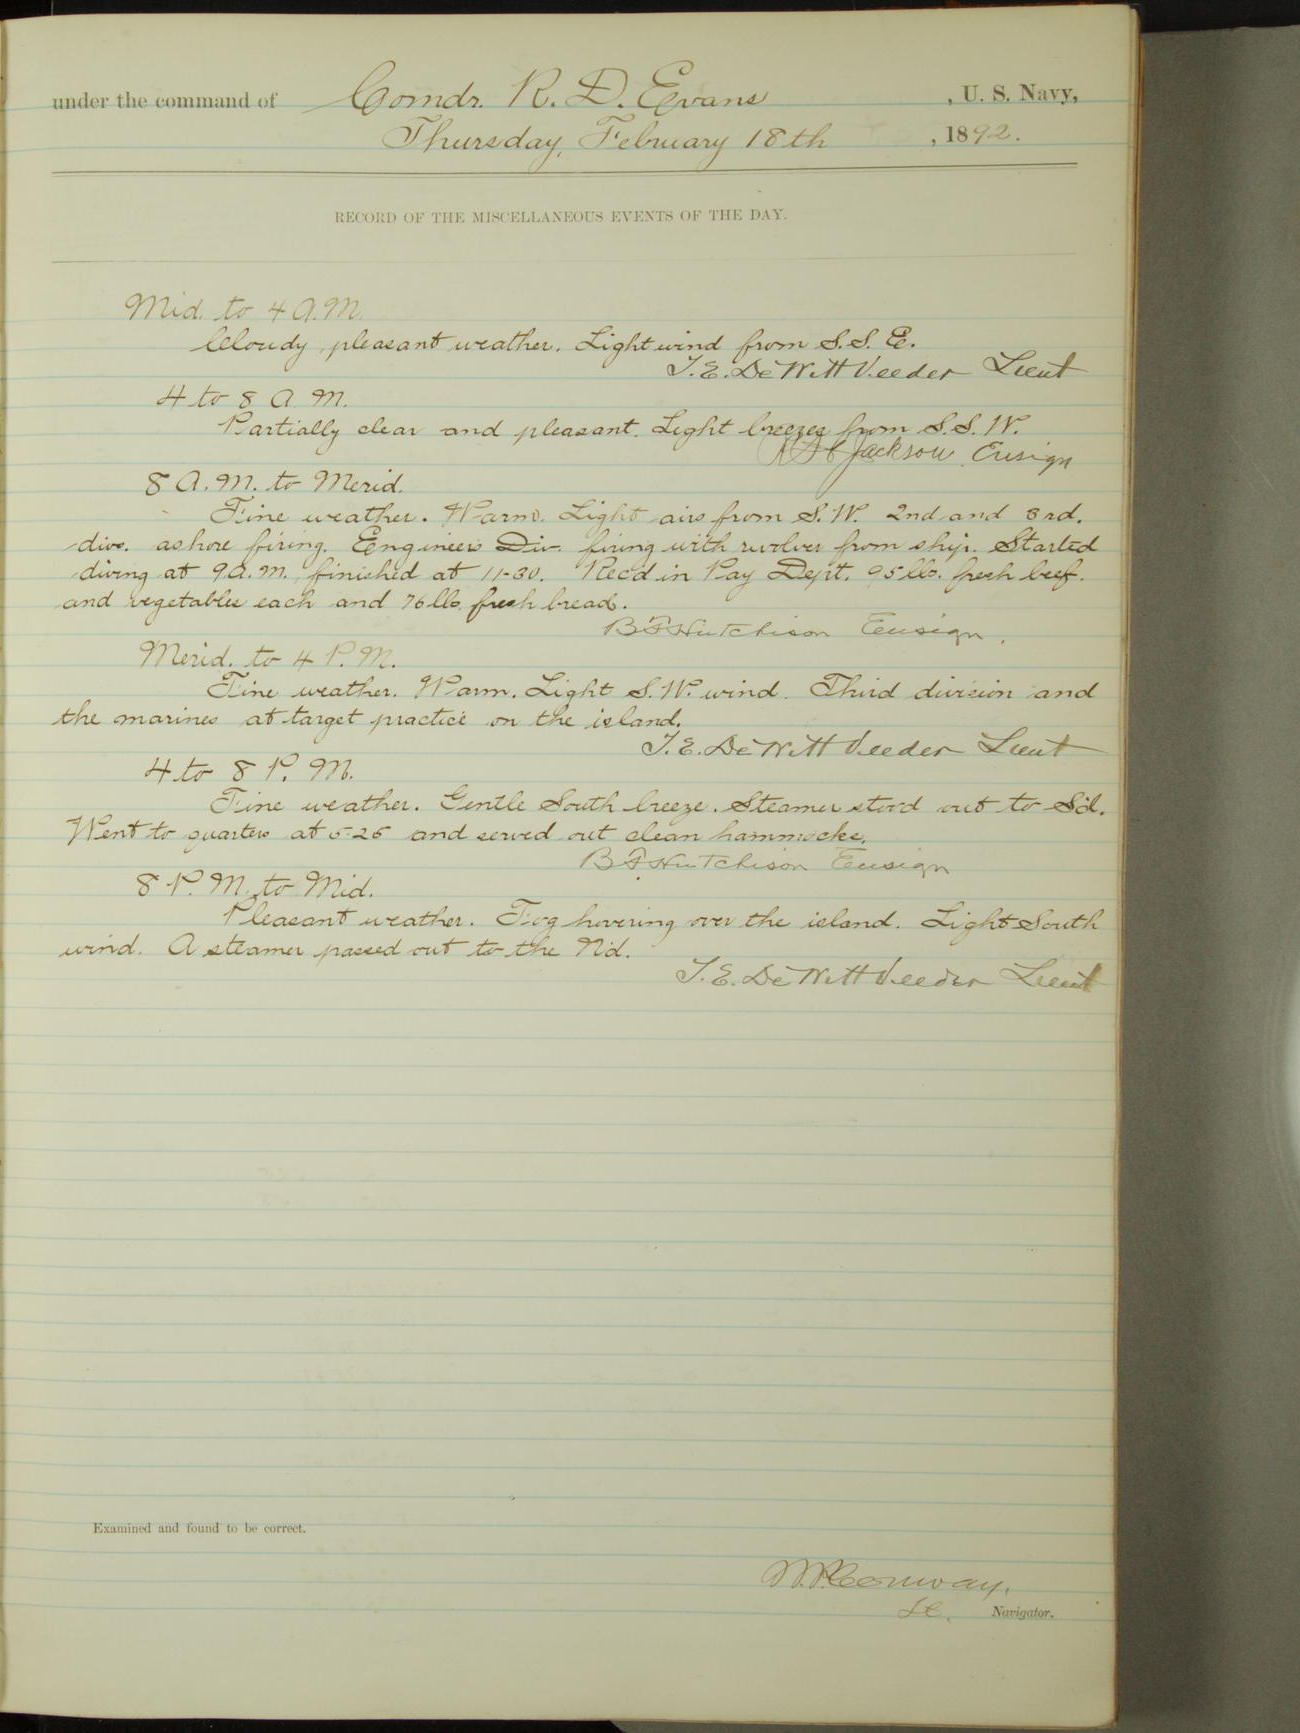 under the command of Comdr. R. D. Evans , U. S. Navy,
Thursday, February 18th , 1892.
RECORD OF THE MISCELLANEOUS EVENTS OF THE DAY.
Mid. to 4 A.M.
Cloudy, pleasant weather. Light wind from S.S.E.
T.E. DeWitt Veeder Lieut
4 to 8 A.M.
Partially clear and pleasant. Light breezes from S.S.W.
Jackson Ensign
8 A.M. to Merid.
Fine weather. Warm. Light airs from S.W. 2nd and 3rd.
divs. ashore firing. Engineers Div. firing with revolver from ship. Started
diving at 9 A.M., finished at 11-30. Rec'd in Pay Dept. 95 lbs. fresh beef.
and vegetables each and 76 lbs. fresh bread.
B F Hutchison Ensign.
Merid. to 4 P.M.
Fine weather. Warm. Light S.W. wind. Third division and
the marines at target practice on the island.
T.E. DeWitt Veeder Lieut
4 to 8 P.M.
Fine weather. Gentle South breeze. Steamer stood out to S'd.
Went to quarters at 5-25 and served out clean hammocks.
B F Hutchison Ensign
8 P.M. to Mid.
Pleasant weather. Fog hovering over the island. Light South
wind. A steamer passed out to the N'd.
T.E. DeWitt Veeder Lieut
Examined and found to be correct.
W.P. Conway,
Navigator.